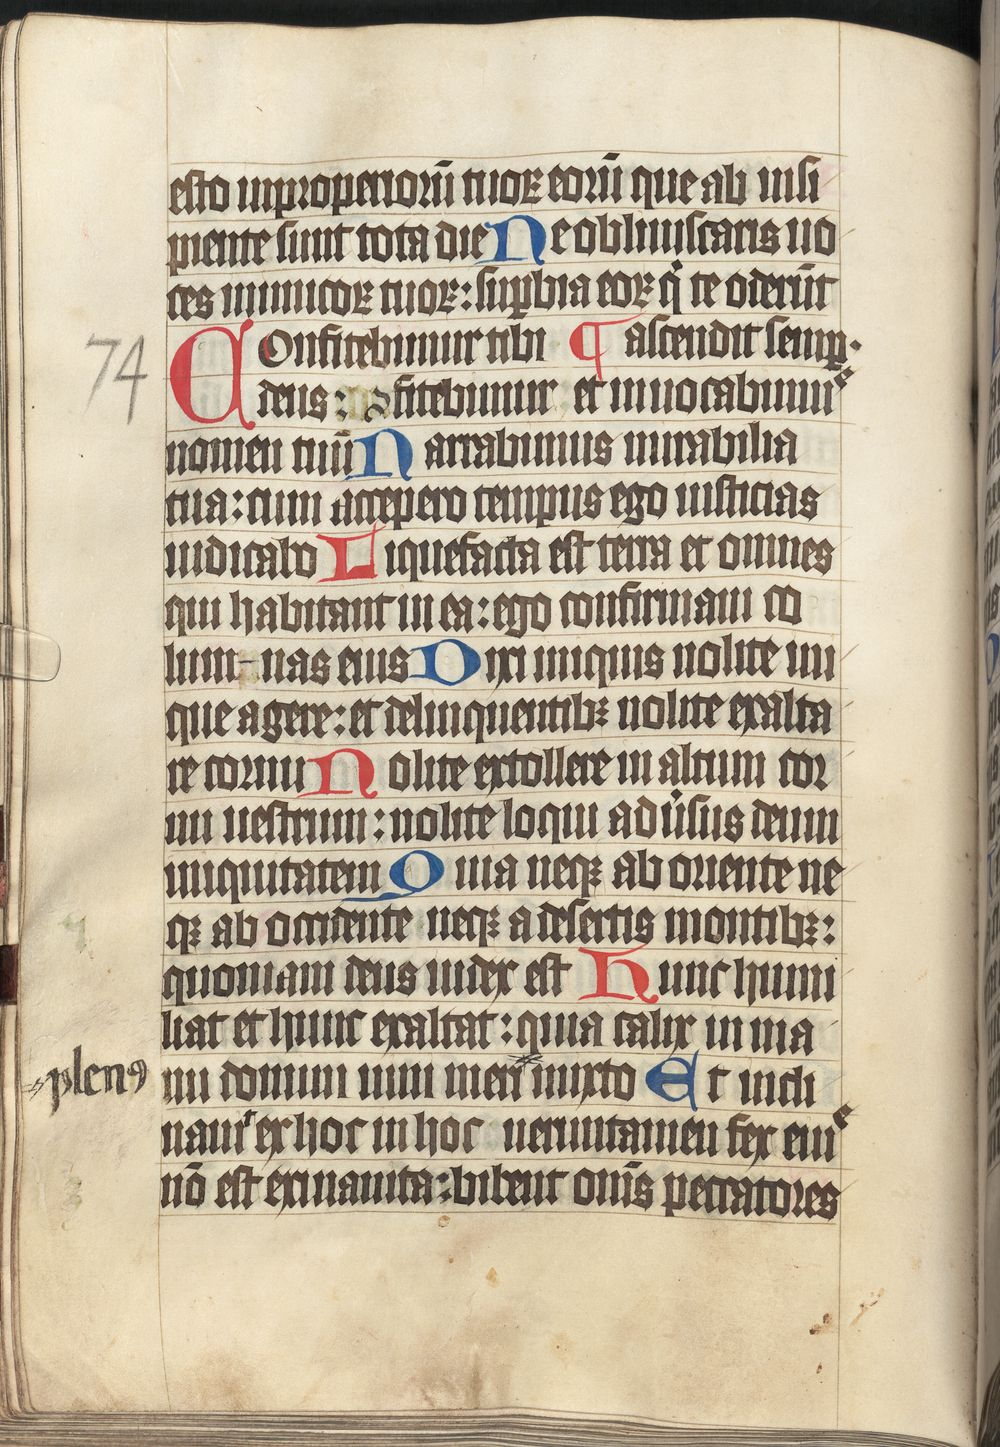 esto inproperiorū tuoꝝ eorū que ab insi
piente sunt tota die Ne obliuiscaris uo
ces inimicoꝝ tuoꝝ: suꝑbia eoꝝ q̇ te oderūt
COnfitebimur tibi ¶ ascendit semꝑ.
74
deus: ꝯfitebimur et inuocabimuˢ
nomen tuū Narrabimus mirabilia
tua: cum accepero tempus ego iusticias
iudicabo Liquefacta est terra et omnes
qui habitant in ea: ego confirmaui co
lum-nas eius Dixi iniquis nolite ini
que agere: et delinquentibꝫ nolite exalta
re cornu Nolite extollere in altum cor
nu uestrum: nolite loqui adūsus deum
iniquitatem Quia neqꝫ ab oriente ne
qꝫ ab occidente neqꝫ a desertis montibꝫ:
quoniam deus iudex est Hunc humi
liat et hunc exaltat: quia calix in ma
nu domini uini meri mixto Et incli
plenꝰ
nauiᵗ ex hoc in hoc uerumtamen fex eiuˢ
nō est exinanita: bibent om̄s peccatores